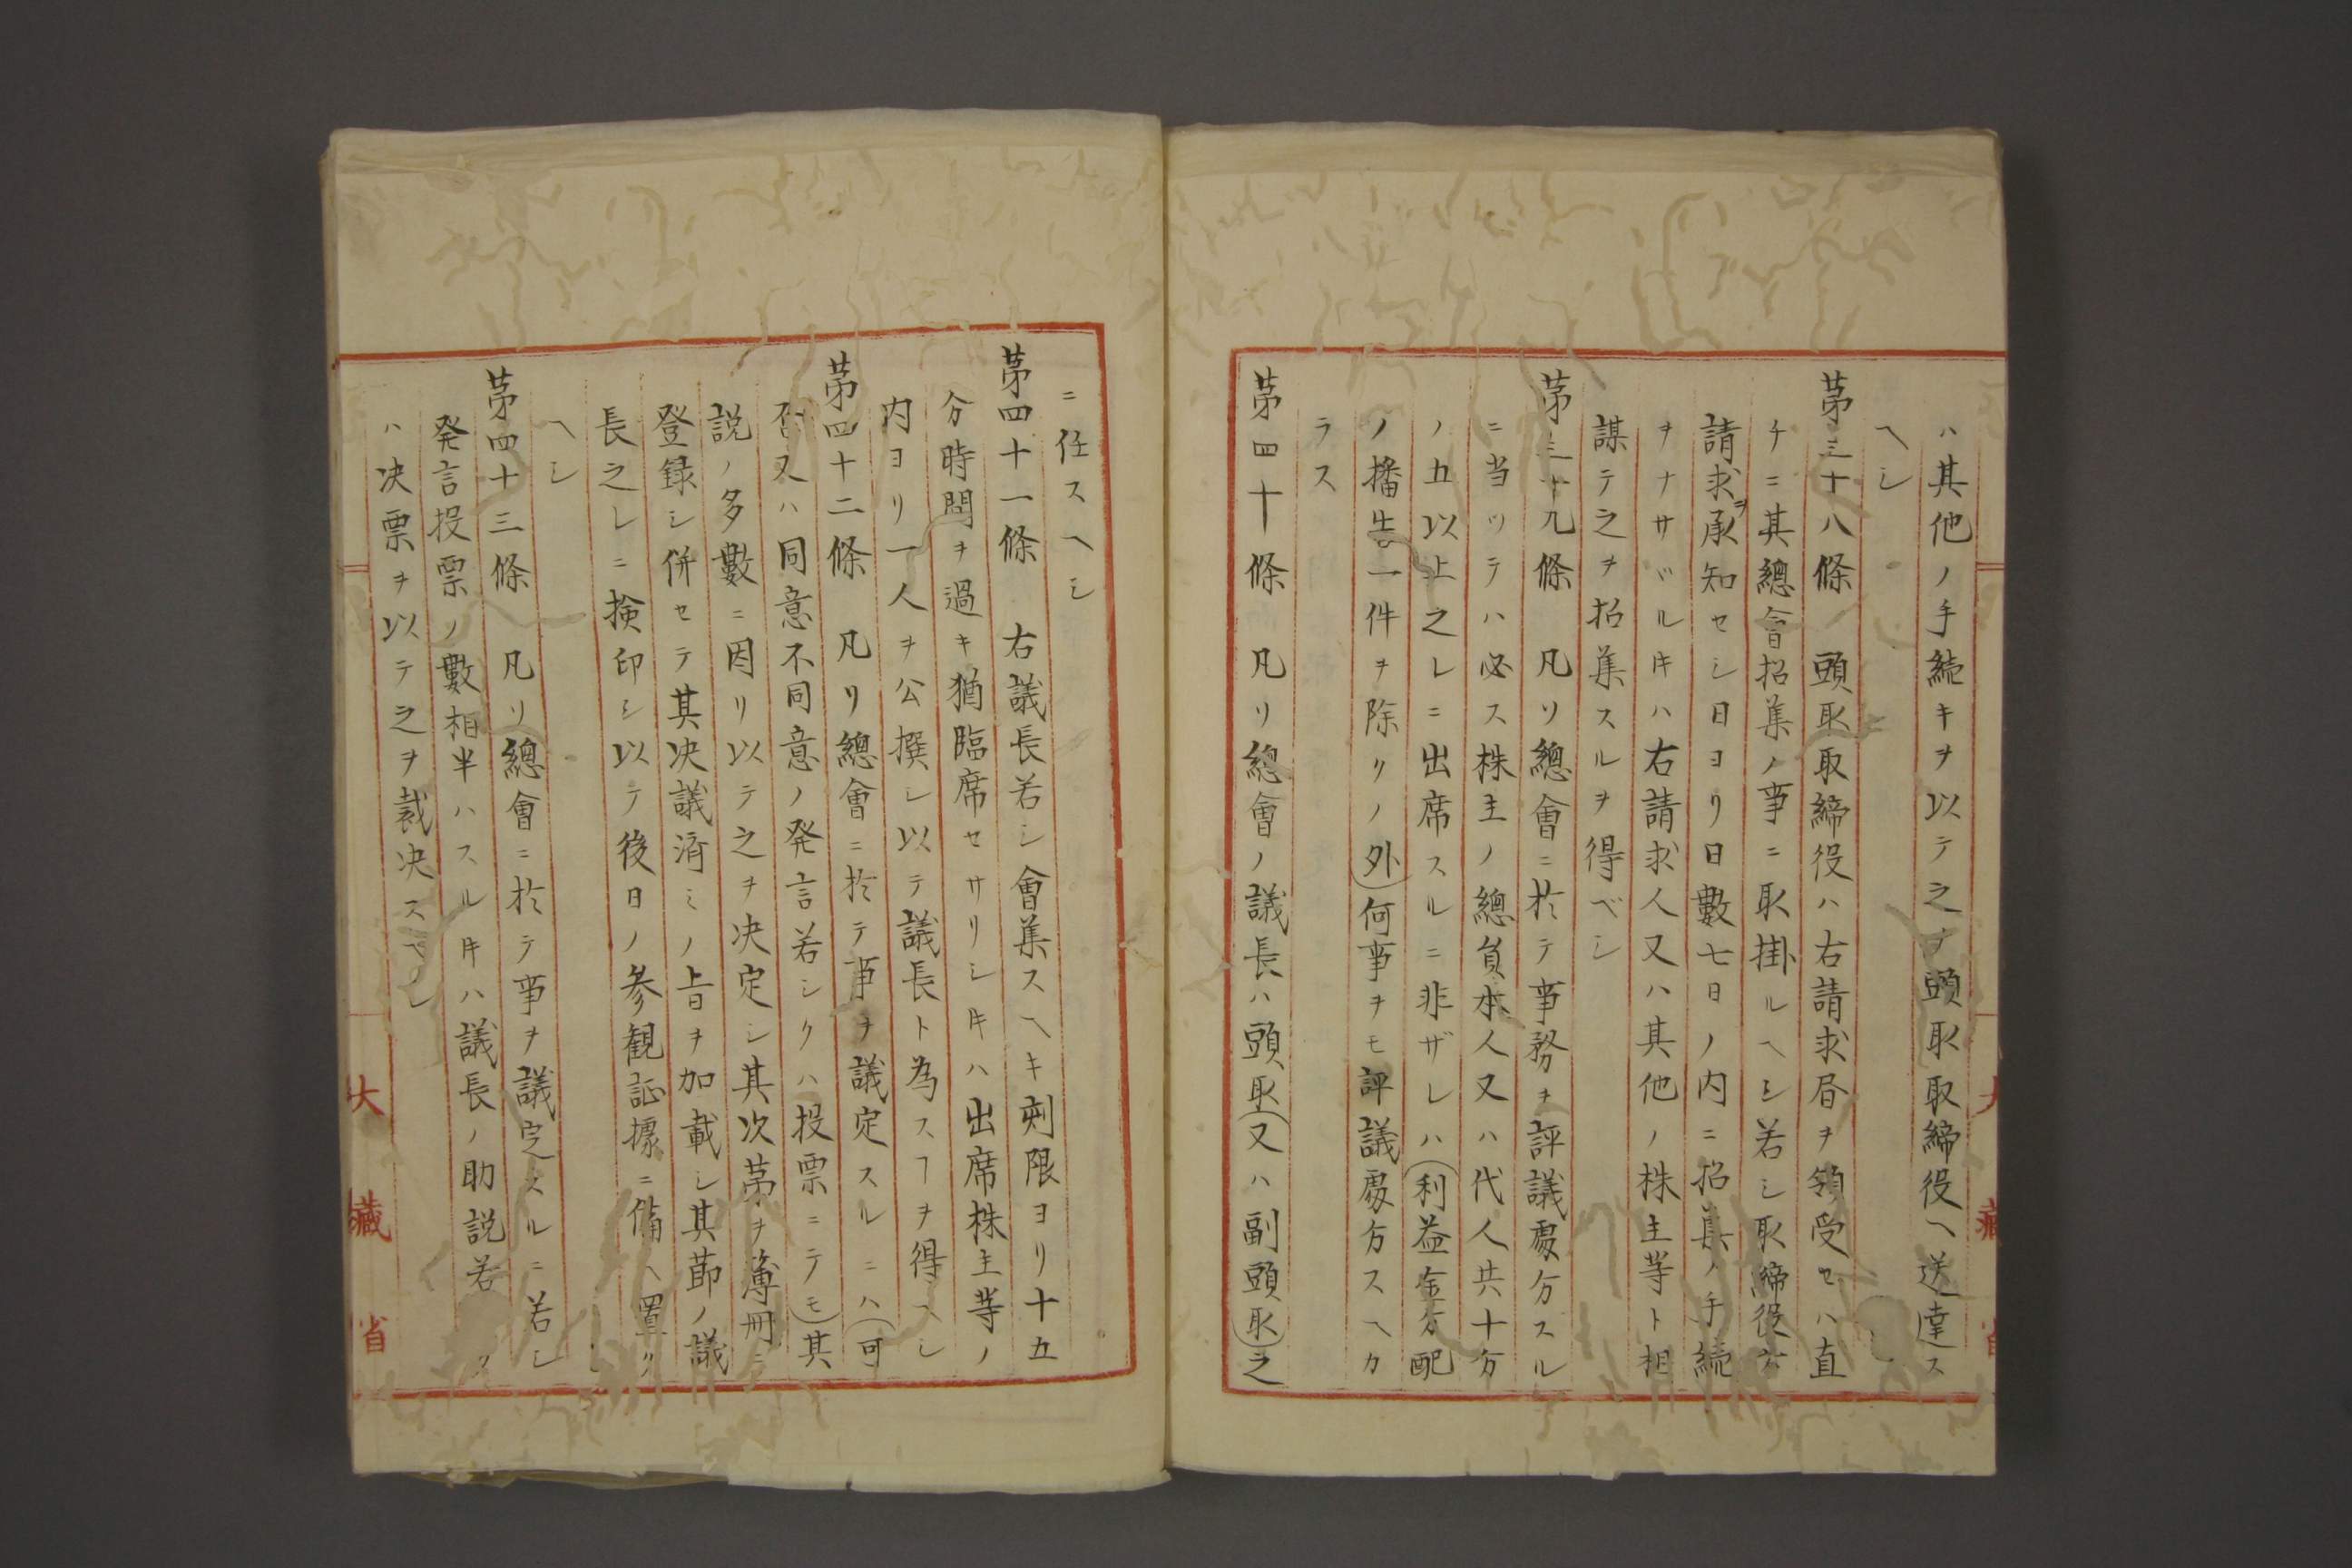 ハ其他ノ手続キヲ以テ之ヲ頭取取締役ヘ送達ス
ヘシ
第三十八條　頭取取締役ハ右請求書ヲ領受セハ直
チニ其總會招集ノ事ニ取掛ルヘシ若シ取締役六
請求ヲ承知セシ日ヨリ日數七日ノ内ニ招集ノ手続
ヲナサヾルキハ右請求人又ハ其他ノ株主等ト相
謀テ之ヲ招集スルヲ得ベシ
第三十九條　凡ソ總會ニ於テ事務ヲ評議處分スル
ニ当ツテハ必ス株主ノ總員本人又ハ代人共十分
ノ五以上之レニ出席スルニ非ザレハ(利益金分配
ノ播告一件ヲ除クノ外)何事ヲモ評議處分スヘカ
ラス
第四十條　凡リ總會ノ議長ハ頭取(又ハ副頭取)之
大藏省
ニ任スヘシ
第四十一條　右議長若シ會集スヘキ刻限ヨリ十五
分時間ヲ過キ猶臨席セサリシキハ出席株主等ノ
内ヨリ一人ヲ公撰シ以テ議長ト為スヿヲ得ヘシ
第四十二條　凡リ總會ニ於テ事ヲ議定スルニハ(可
否又ハ同意不同意ノ発言若シクハ投票ニテモ)其
説ノ多數ニ因リ以テ之ヲ决定シ其次第ヲ簿冊ニ
登録シ併セテ其决議済ミノ旨ヲ加載シ其節ノ議
長之レニ検印シ以テ後日ノ参観証據ニ備ヘ置ク
ヘシ
第四十三條　凡リ總會ニ於テ事ヲ議定スルニ若シ
発言投票ノ數相半ハスルキハ議長ノ助説若ク
ハ决票ヲ以テ之ヲ裁决スヘシ
大藏省